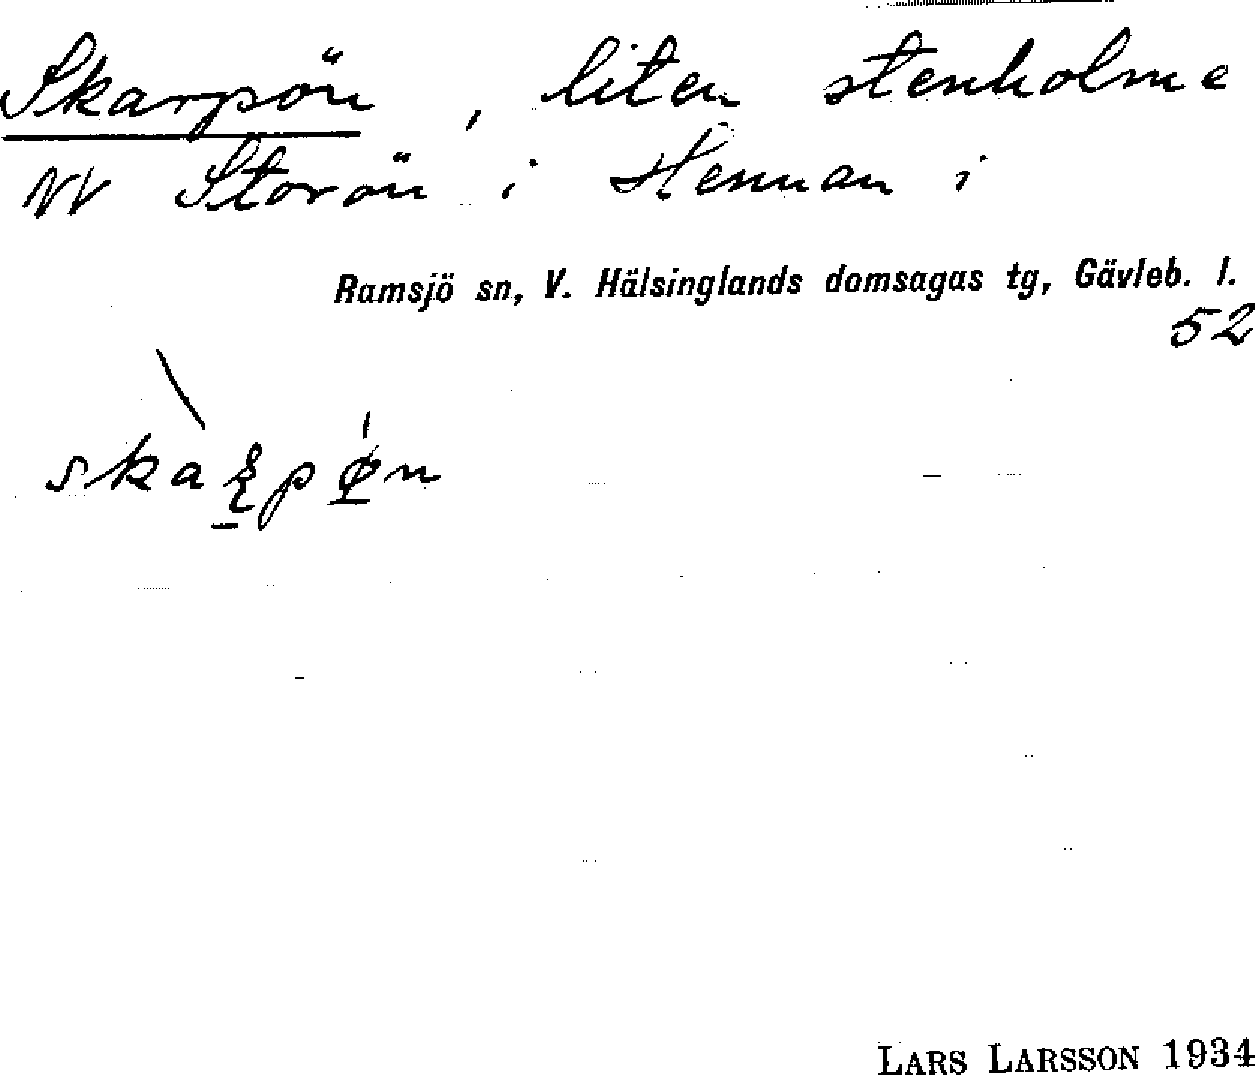 Skarpön, liten stenholme
NV Storön i Hennan i
Ramsjö sn, V. Hälsinglands domsagas tg, Gävleb. l.
52
LARS LARSSON 1934